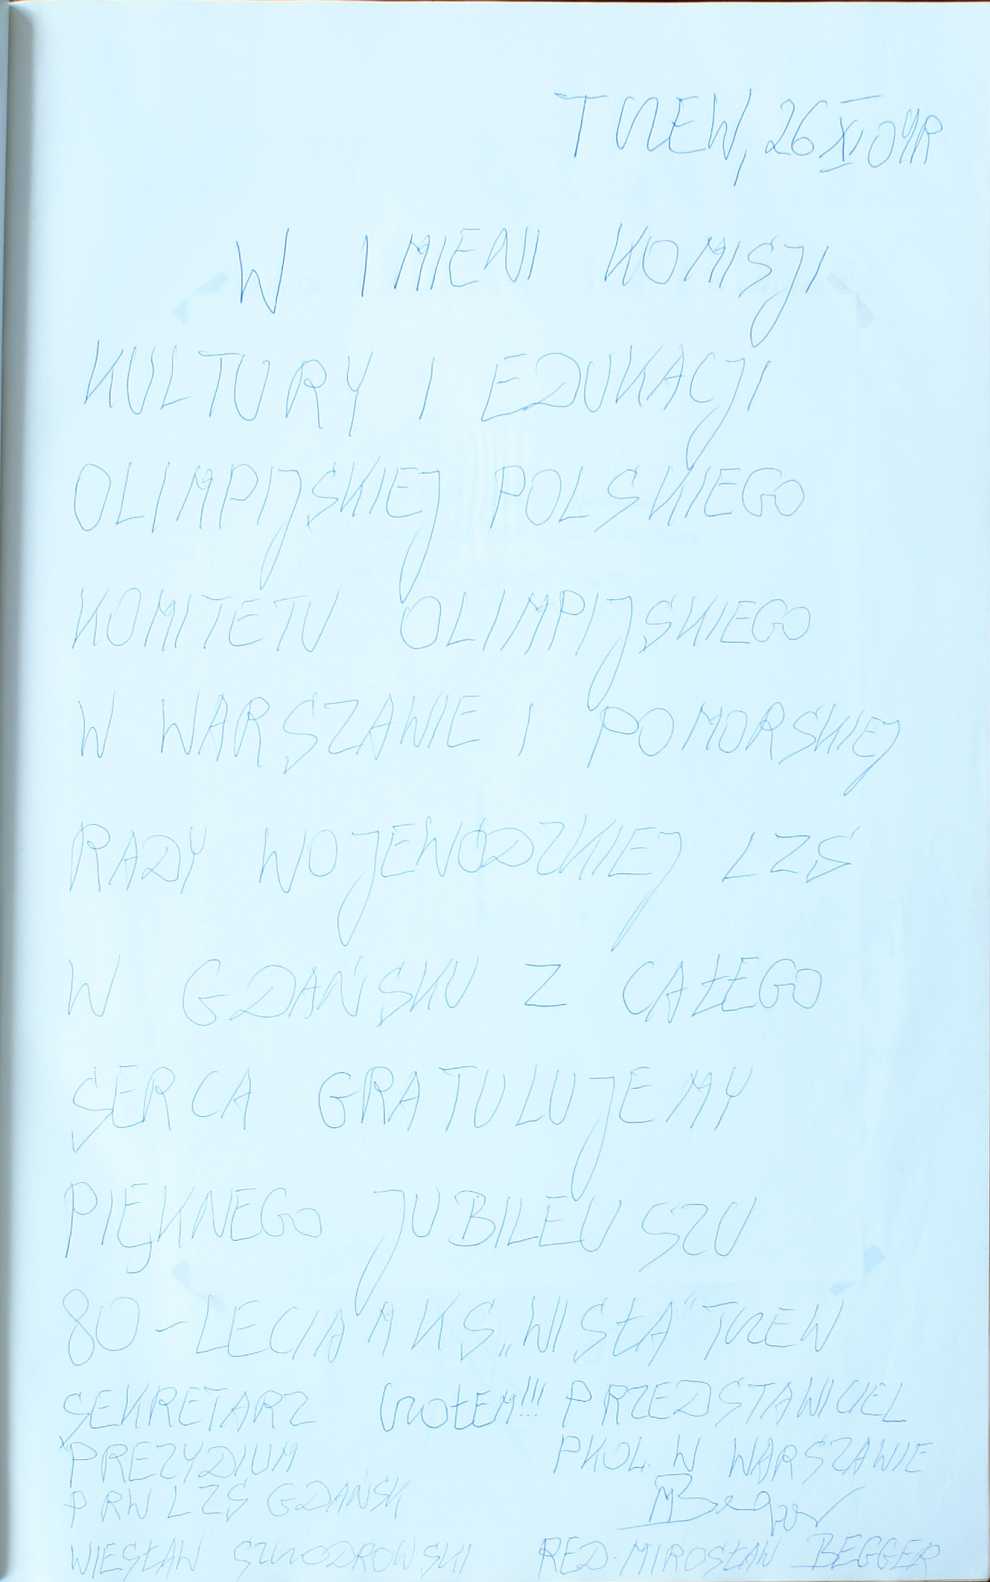 TCZEW, 26 XI 04R
W IMIENI KOMISJI
KULTURY I EDUKACJI
OLIMPIJSKIEJ POLSKIEGO
KOMITETU OLIMPIJSKIEGO
W WARSZAWIE I POMORSKIEJ
RADY WOJEWÓDZKIEJ LZS
W GDAŃSKU Z CAŁEGO
SERCA GRATULUJEMY
PIĘKNEGO JUBILEUSZU
80-LECIA MKS „WISŁA" TCZEW
SEKRETARZ CZOŁEM!!! PRZEDSTAWICIEL
PREZYDIUM PKOL. W WARSZAWIE
PRW LZS GDAŃSK MBegger
WIESŁAW RED. MIROSŁAW BEGGER